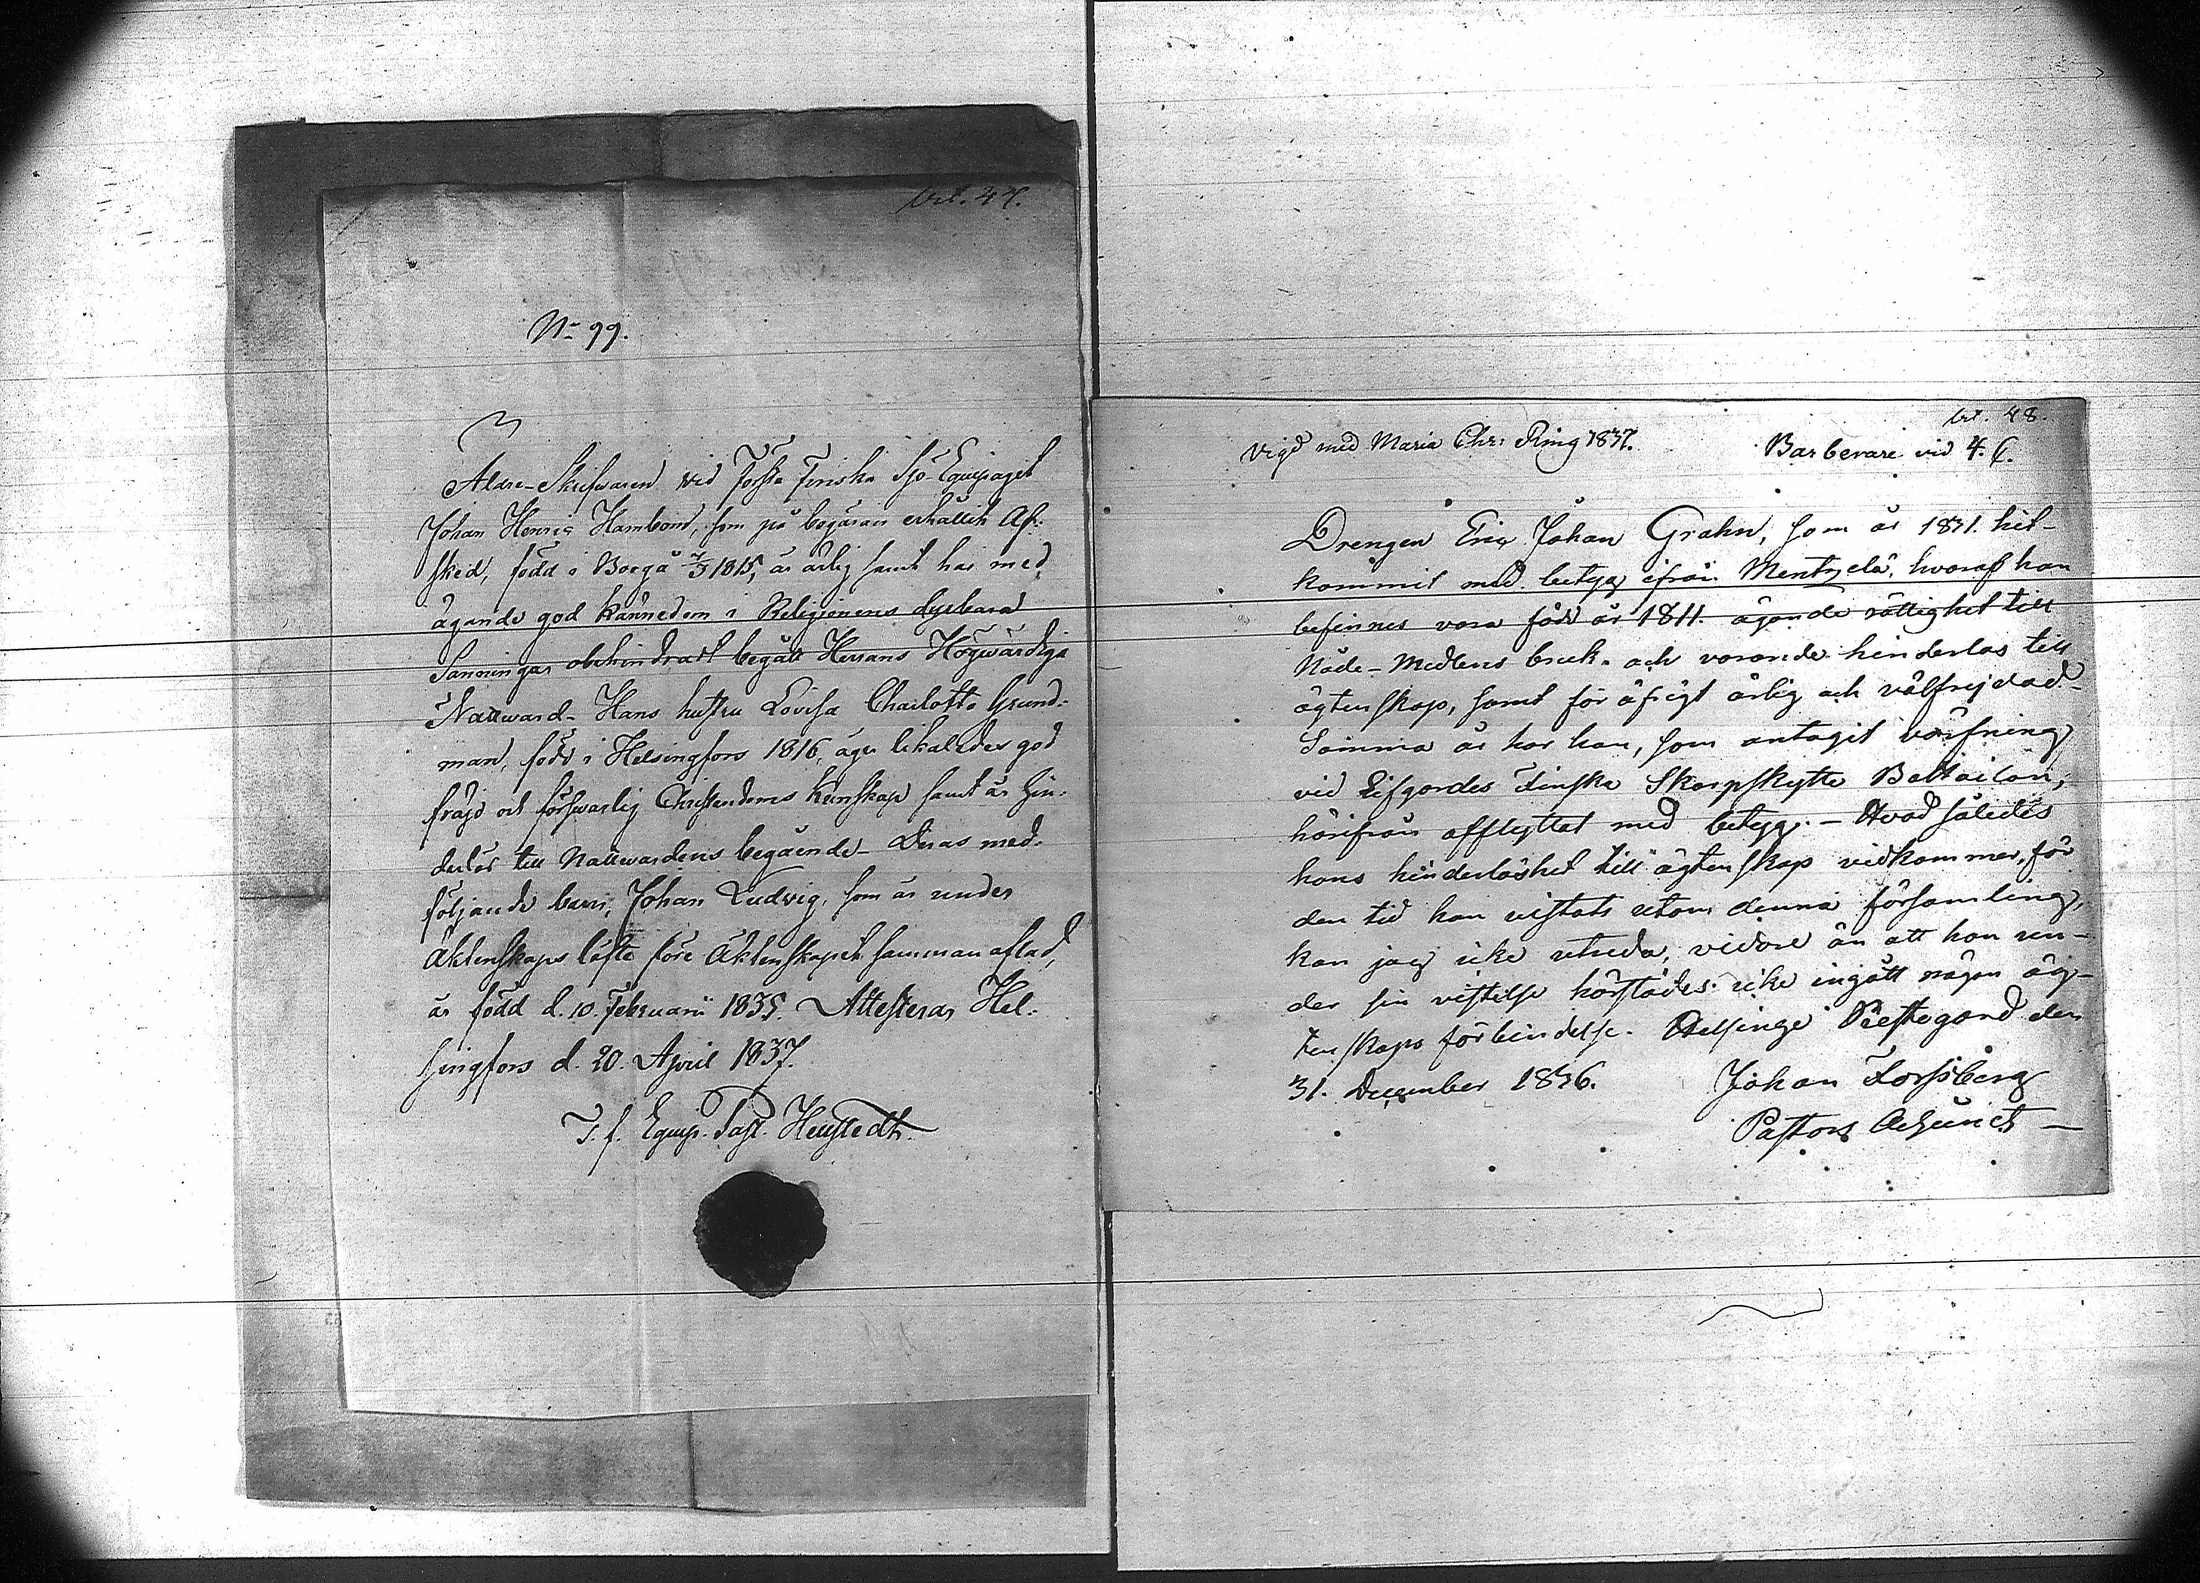 Art. 47.
No 99.
Äldre-Skrifwaren wid Första Finska Sjö-Equipaget
Johan Henric Hambom, som på begäran erhållit Af-
sked, född i Borgå 7/3 1815, är ärlig samt har med
ägande god kännedom i Religionens dyrbara
Sanningar obehindradt begått Herrans Högwärdiga
Nattward. Hans hustru Lovisa Charlotta Grund-
man, född i Helsingfors 1816, äger likaledes god
fräjd och förswarlig Christendoms kunskap samt är hin-
derlös till Nattwardens begående. Deras med-
följande barn, Johan Ludvig, som är under
Äktenskaps löfte före Äktenskapet samman aflad,
är född d. 10. Februarii 1835. Attesteras Hel-
singfors d. 20. April 1837.
T. f. Equip. Past.
Art. 48.
Vigd med Maria Chr: Ring 1837.
Barberare vid 4. C.
Drengen Eric Johan Grahn, som år 1831. hit-
kommit med betyg ifrån Mentzelä, hvaraf han
befinnes vara född år 1811. ägande rättighet till
Nåde-Medlens bruk och varande hinderlös till
ägtenskap, samt för öfrigt ärlig och välfrejdad.
Samma år har han, som antagit värfning
vid Lifgardes Finska Skarpskytte Battailon,
härifrån afflyttat med betyg. – Hvad således
hans hinderlöshet till ägtenskap vidkommer, för
den tid han vistats utom denna församling,
kan jag icke utreda, vidare än att han un-
der sin vistelse härstädes icke ingått någon äg-
tenskaps förbindelse. Helsinge Prestegård den
31. December 1836. Johan Forssberg
Pastors Adjunct –